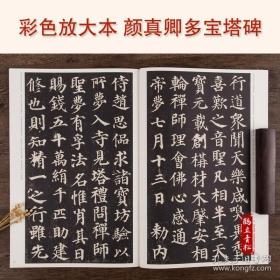 彩色放大本 颜真卿多宝塔碑
行道衆聞天樂咸嗅異香
喜歎之音聖凡相半至天
寶元載創構材木肇安相
輪禪師理會佛心感通
帝夢七月十三日勑内
侍趙思偘求諸寶坊驗以
所夢入寺見塔禮問禪師
聖夢有孚法名惟肖其日
賜錢五十萬絹千匹助建
修也則知精一之行雖先